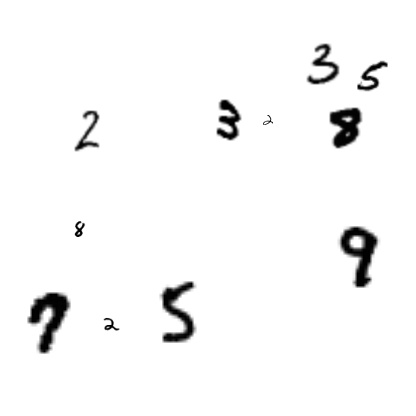 3 5
2 3 2 8
8
9
7 2 5